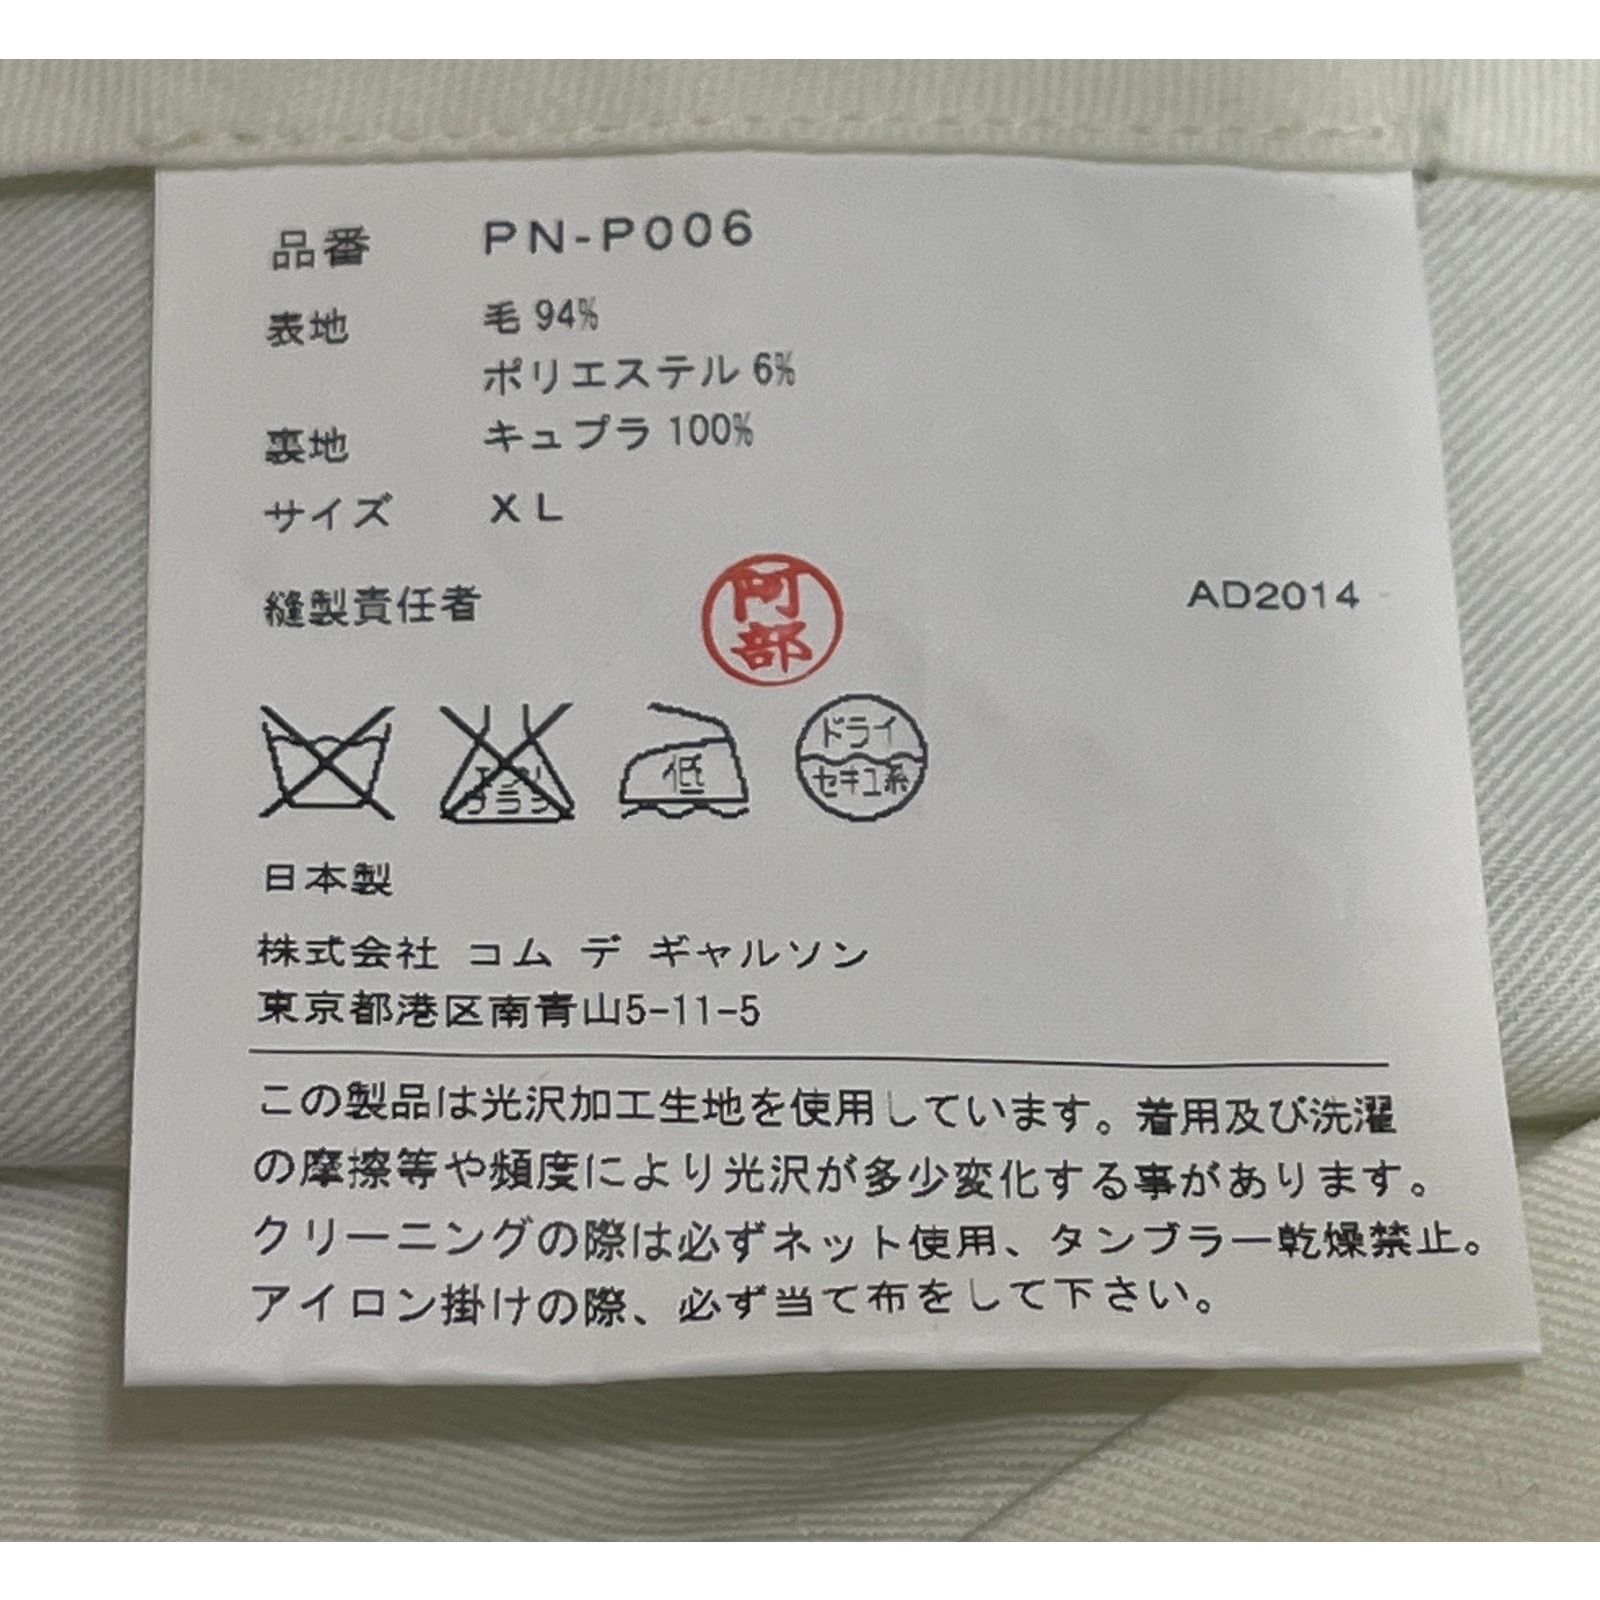 品番 PN-P006
表地 毛 94%
ポリエステル 6%
裏地 キュプラ 100%
サイズ XL
縫製責任者 阿部 AD2014
エンソ
サラシ
低
ドライ
セキユ系
日本製
株式会社 コム デ ギャルソン
東京都港区南青山5-11-5
この製品は光沢加工生地を使用しています。着用及び洗濯
の摩擦等や頻度により光沢が多少変化する事があります。
クリーニングの際は必ずネット使用、タンブラー乾燥禁止。
アイロン掛けの際、必ず当て布をして下さい。